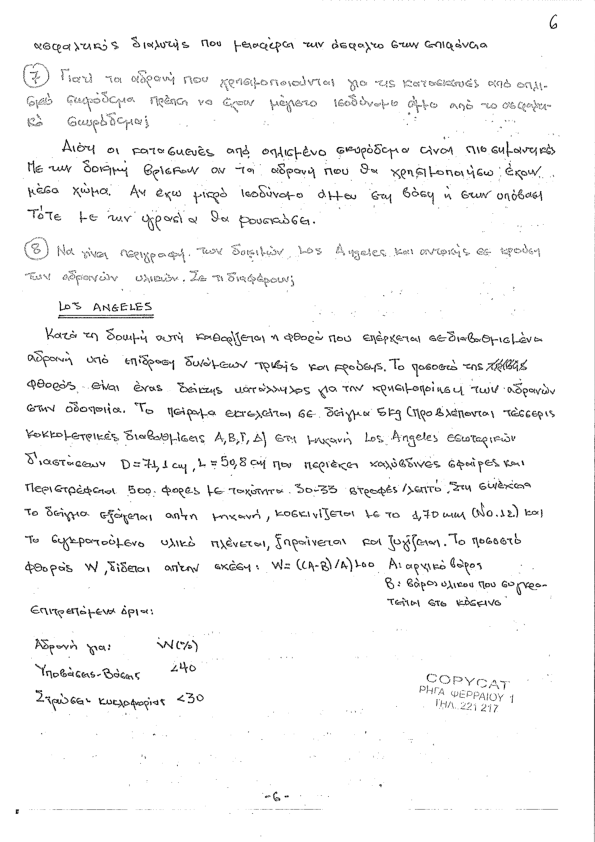 6
ασφαλτικός διαλυτής που μεταφέρει την άσφαλτο στην επιφάνεια
7) Γιατί τα αδρανή που χρησιμοποιούνται για τις κατασκευές από οπλι-
σμένο σκυρόδεμα πρέπει να έχουν μέγιστο ισοδύναμο άμμο από το ασφαλτι-
κό σκυρόδεμα;
Διότι οι κατασκευές από οπλισμένο σκυρόδεμα είναι πιο σημαντικές
Με την δοκιμή βρίσκουν αν τα αδρανή που θα χρησιμοποιήσω έχουν
μέσα χώμα. Αν έχω μικρό ισοδύναμο άμμου στη βάση ή στην υπόβαση
Τότε με την υγρασία θα φουσκώσει.
8) Να γίνει περιγραφή των δοκιμών Los Angeles και αντοχής σε κρούση
των αδρανών υλικών. Σε τι διαφέρουν;
LOS ANGELES
Κατά τη δοκιμή αυτή καθορίζεται η φθορά που επέρχεται σε διαβαθμισμένα
αδρανή υπό επίδραση δυνάμεων τριβής και κρούσης. Το ποσοστό της
φθοράς είναι ένας δείκτης κατάλληλος για την χρησιμοποίηση των αδρανών
στην οδοποιία. Το πείραμα εκτελείται σε δείγμα 5kg (προβλέπονται τέσσερις
κοκκομετρικές διαβαθμίσεις Α,Β,Γ,Δ) στη μηχανή Los Angeles εσωτερικών
διαστάσεων D=71,1 cm, L=50,8 cm που περιέχει χαλύβδινες σφαίρες και
περιστρέφεται 500 φορές με ταχύτητα 30-33 στροφές/λεπτό. Στη συνέχεια
το δείγμα εξάγεται απ'τη μηχανή, κοσκινίζεται με το 1,70 mm (No.12) και
το συγκρατούμενο υλικό πλένεται, ξηραίνεται και ζυγίζεται. Το ποσοστό
φθοράς W, δίδεται απ'την σχέση: W=((A-B)/A)100 A: αρχικό βάρος
B: βάρος υλικού που συγκρα-
τείται στο κόσκινο
Επιτρεπόμενα όρια:
Αδρανή για: W(%)
Υποβάσεις-Βάσεις <40
Στρώσεις κυκλοφορίας <30
COPYCAT
ΡΗΓΑ ΦΕΡΡΑΙΟΥ 1
ΤΗΛ. 221 217
-6-